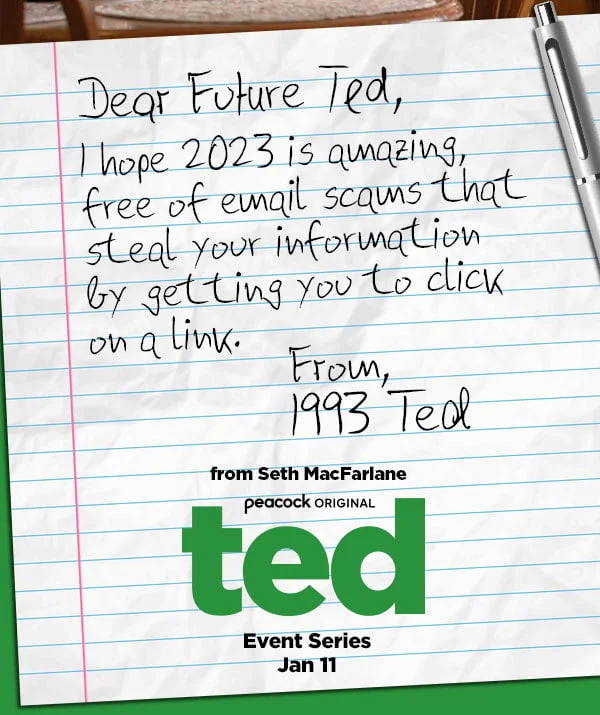 Dear Future Ted,
I hope 2023 is amazing,
free of email scams that
steal your information
by getting you to click
on a link.
From,
1993 Ted
from Seth MacFarlane
peacock ORIGINAL
ted
Event Series
Jan 11